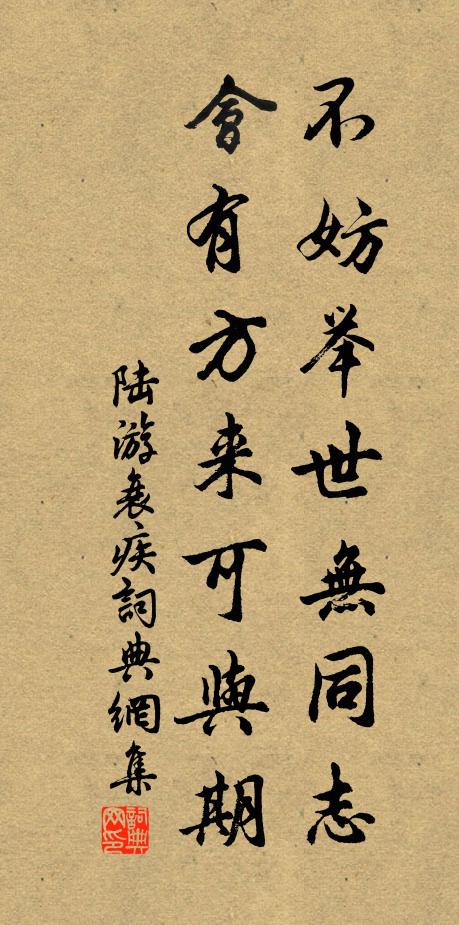 不妨举世無同志
會有方来可與期
陆游衰疾詞典網集
詞典网印